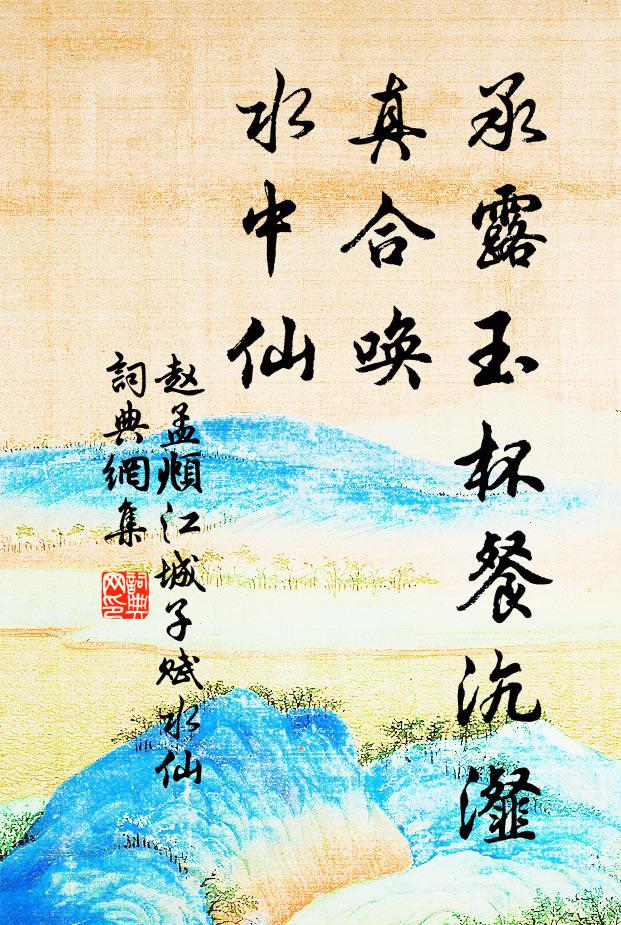 承露玉杯餐沆瀣
真合唤
水中仙
赵孟頫江城子赋水仙
詞典網集
詞典
网印